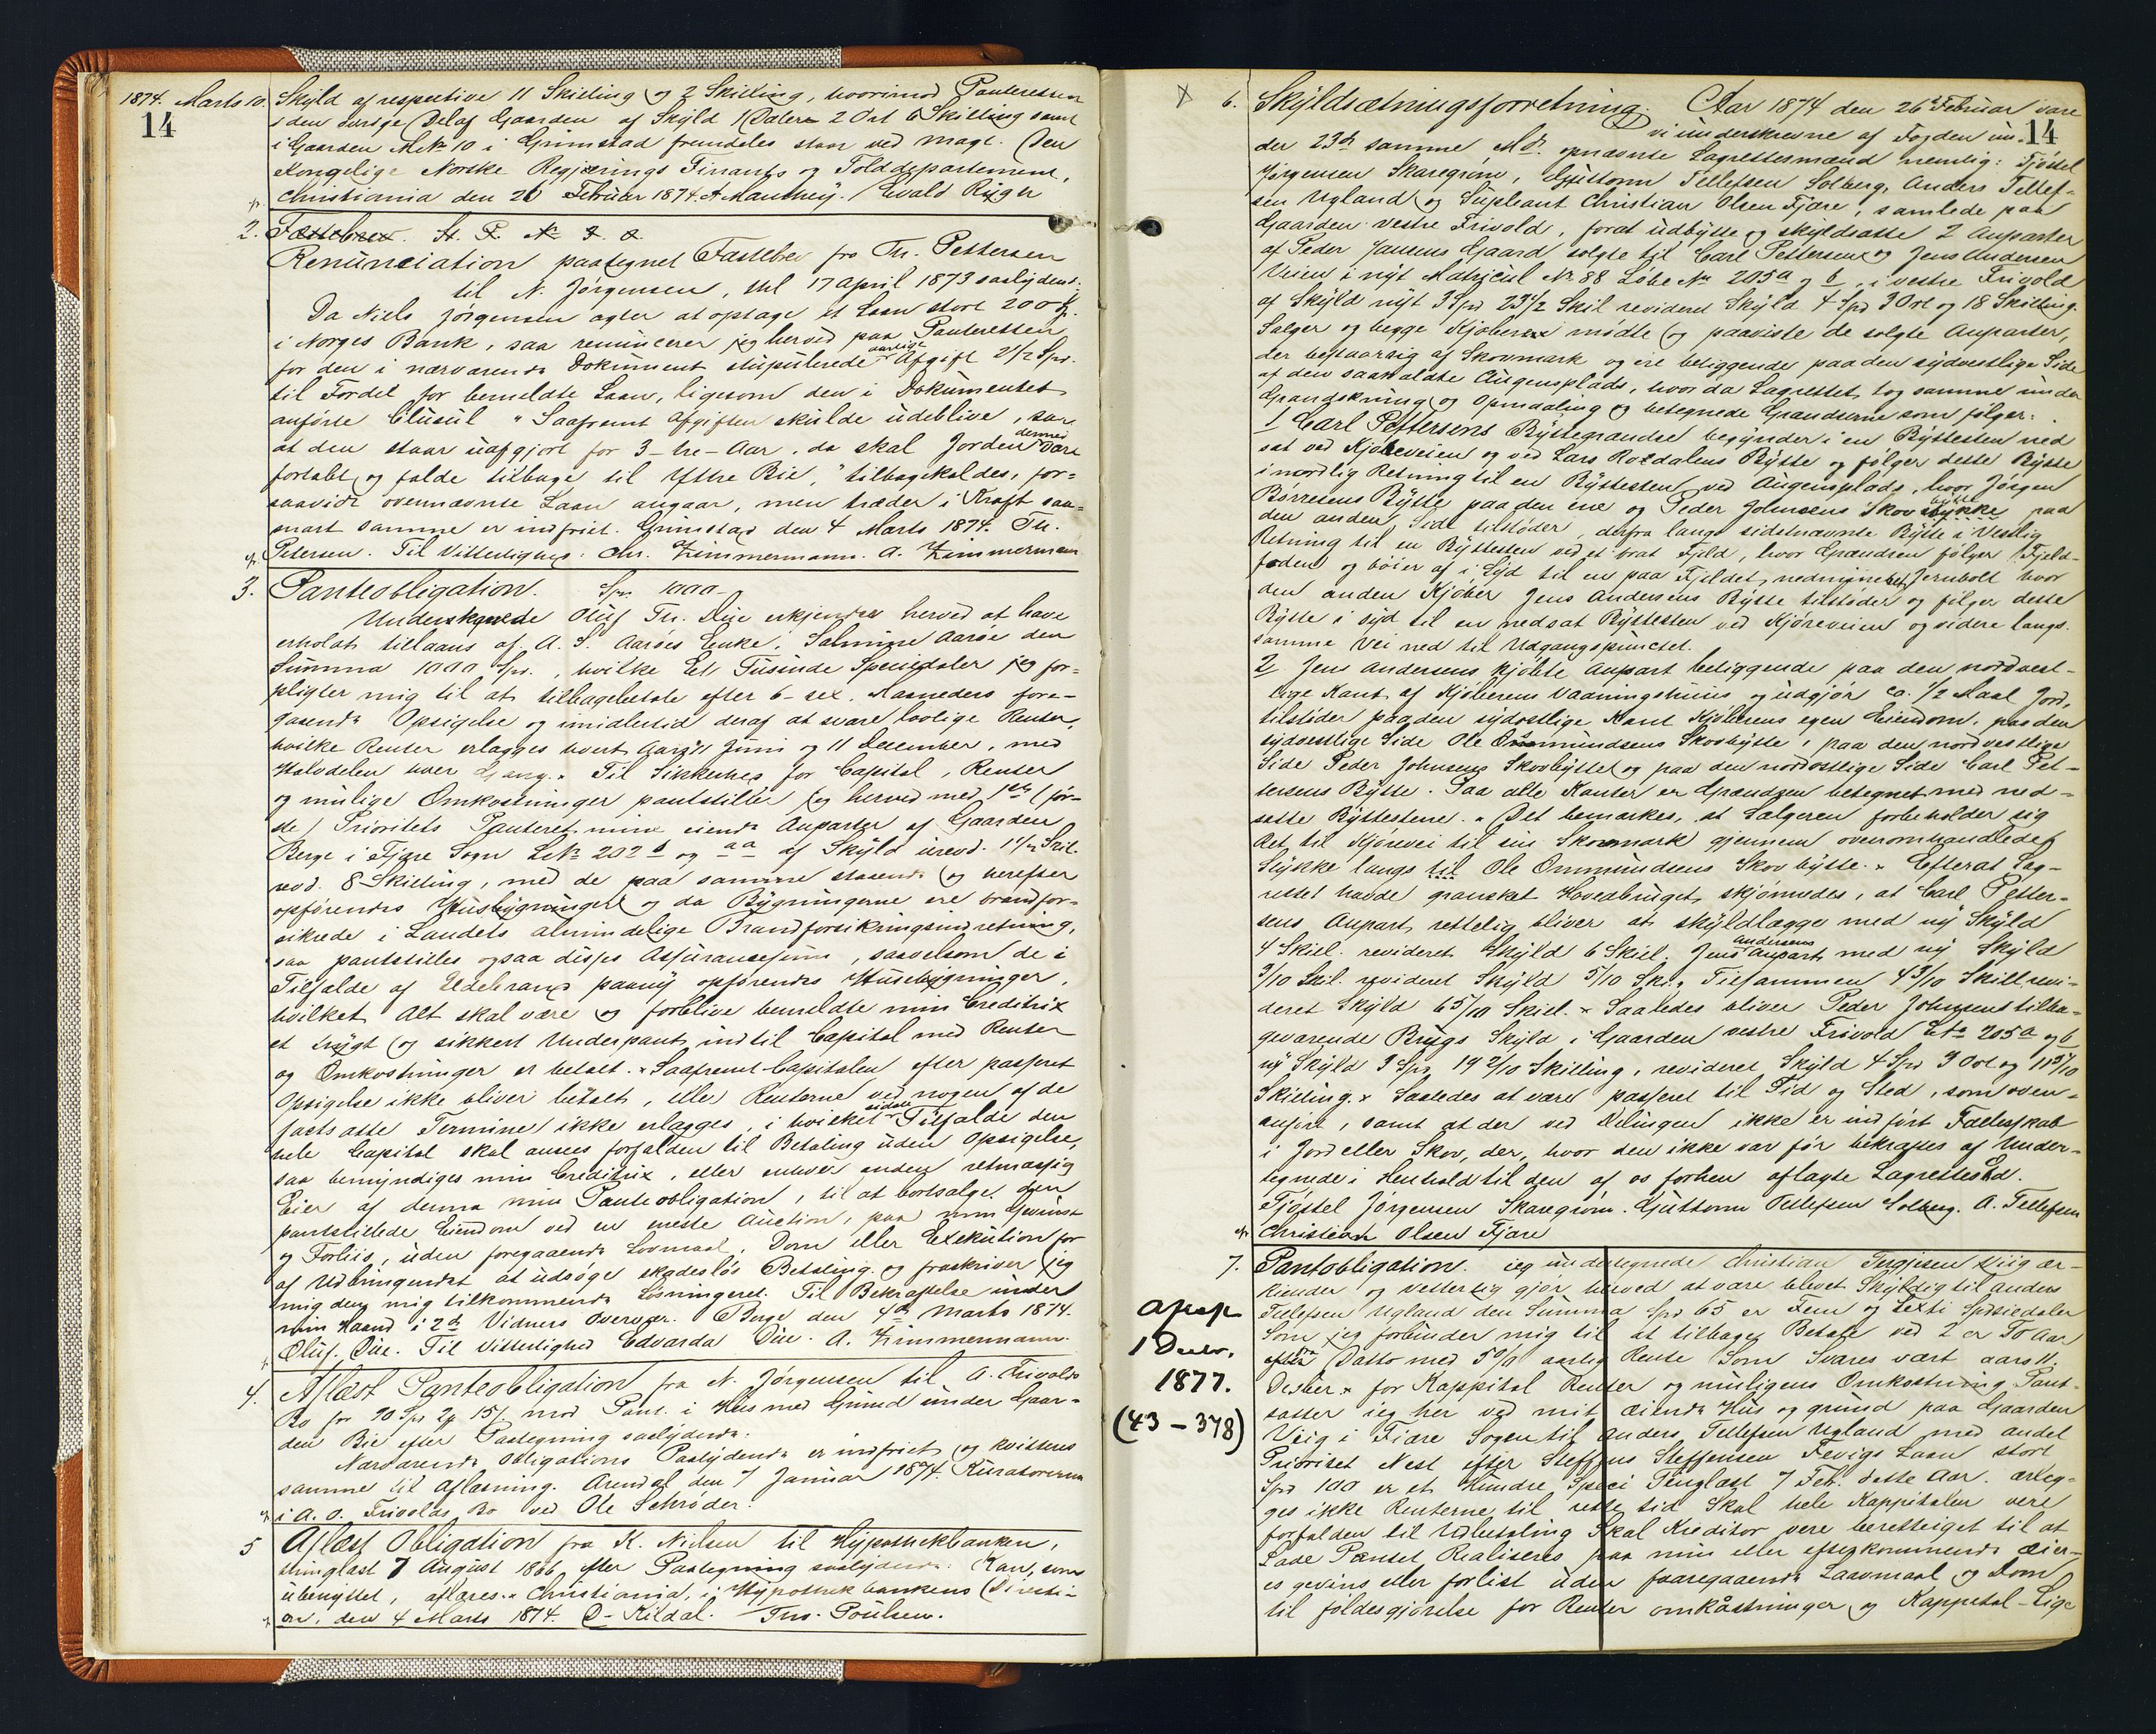 1874. Marts 10.
14
Skyld af respective 11 Skilling og 2 Skilling, hvorimod Panteretten
i den øvrige Del af Gaarden af Skyld 1 Daler 2 Ort 6 Skilling samt
i Gaarden MNo 10 i Grimstad fremdeles staar ved magt. Den
Kongelige Norske Regjerings Finants og Tolddepartement,
Christiania den 26 Februar 1874. A Manthey. / Evald Rygh
2. Fæstebrev. St. P. N. J. O.
Renunciation paategnet Fæstebrev fra Th. Pettersen
til N. Jørgensen, thl 17 April 1873 saalydent:
Da Niels Jørgensen agter at optage et Laan stort 200 Spd.
i Norges Bank, saa renuncerer jeg herved paa Panteretten
for den i nærværende Dokument stipulerede aarlige Afgift 2 1/2 Spd.
til Fordel for bemeldte Laan, ligesom den i Dokumentet
anførte Clusul "Saafremt Afgiften skulde udeblive, saa
at den staar uafgjort for 3 - tre - Aar, da skal Jorden dermed være
fortabt og falde tilbage til Yttre Bie," tilbagekaldes, for-
saavidt ovennævnte Laan angaar, men træder i Kraft saa-
snart samme er indfriet. Grimstad den 4 Marts 1874. Th.
Petersen. Til Vitterlighed: Chr. Zimmermann. A. Zimmermann
3. Panteobligation. Spd. 1000-
Underskrevede Oluf Th. Due erkjender herved at have
erholdt tillaans af A. S. Aarøes Enke, Salmine Aarøe den
Summa 1000 Spd., hvilke Et Tusinde Speciedaler jeg for-
pligter mig til at tilbagebetale efter 6 - sex - Maaneders fore-
gaaende Opsigelse og imidlertid deraf at svare lovlige Renter,
hvilke Renter erlægges hvert Aars 11 Juni og 11 December, med
Halvdelen hver Gang. Til Sikkerhed for Capital, Renter
og mulige Omkostninger pantstiller jeg herved med 1ste (før-
ste) Prioritets Panteret mine eiende Anparter af Gaarden
Berge i Fjære Sogn LNo 202 b og aa af Skyld urevd. 1 1/2 Skil.
revd. 8 Skilling, med de paa samme staaende og herefter
opførendes Husbygninger og da Bygningerne ere brandfor-
sikrede i Landets almindelige Brandforsikringsindretning,
saa pantstilles ogsaa disses Assurancesum, saavelsom de i
Tilfælde af Ildebrand paany opførendes Husebygninger,
hvilket Alt skal være og forblive bemeldte min Creditrix
et trygt og sikkert Underpant, indtil Capital med Renter
og Omkostninger er betalt. Saafremt Capitalen efter passeret
Opsigelse ikke bliver betalt, eller Renterne ved nogen af de
fastsatte Terminer ikke erlægges, i hvilket sidste Tilfælde den
hele Capital skal ansees forfalden til Betaling uden Opsigelse,
saa bemyndiges min Creditrix, eller enhver anden retmæssig
Eier af denne min Panteobligation, til at bortsælge den
pantstillede Eiendom ved en eneste Auction, paa min Gevinst
og Forliis, uden foregaaende Lovmaal, Dom eller Exekution for
af Udbringendet at udsøge skadesløs Betaling og fraskriver jeg
mig den mig tilkommende Løsningsret. Til Bekræftelse under
min Haand i 2de Vidners Overvær. Berge den 4de Marts 1874.
Oluf. Due. Til Vitterlighed Edvarda Due. A. Zimmermann.
4. Aflæst Panteobligation fra N. Jørgensen til A. Frivolds
Bo for 90 Spd 2 15 s. mod Pant. i Hus med Grund under Gaar-
den Bie efter Paategning saalydende:
Nærværende Obligations Paalydende er indfriet og kvitteres
samme til Aflæsning. Arendal den 7 Januar 1874. Kuratorerne
i A. O. Frivolds Bo ved Ole Schrøder.
5 Aflæst Obligation fra K. Nielsen til Hypothekbanken,
thinglæst 7 August 1866 efter Paategning saalydende: Kan, som
ubenyttet, aflæses. Christiania, i Hypothekbankens Directi-
on, den 4 Marts 1874. O. Kildal. Ths. Poulsen.
6. Skyldsætningsforretning. Aar 1874 den 26de Februar vare
14
vi underskrevne af Fogden un-
der 23de samme Md. opnævnte Lagrettesmænd nemlig: Tjøstel
Jørgensen Skaregrøm, Guttorm Tellefsen Solberg, Anders Tellef-
sen Ugland og Supleant Christian Olsen Fjære, samlede paa
Gaarden vestre Frivold, forat udbytte og skyldsætte 2 Anparter
af Peder Jansens Gaard solgte til Carl Pettersen og Jens Andersen
Veien i nyt Matricul Nr 88 Løbe No 205a og b, i vestre Frivold
af Skyld nyt 3 Spd 23 1/2 Skil revideret Skyld 4 Spd 3 Ort og 18 Skilling.
Sælger og begge Kjøbere mødte og paaviste de solgte Anparter,
der bestaar sig af Skovmark og ere beliggende paa den sydvestlige Side
af den saakaldte Augensplads, hvor da Lagrettet tog samme under
Grandskning og Opmaaling og betegnede Grændserne som følger:
1 Carl Pettersens Byttegrændse begynder i en Byttesten ned
sat ved Kjøreveien og ved Lars Rosdalens Bytte og følger dette Bytte
i nordlig Retning til en Byttesten ved Augensplads, hvor Jørgen
Børresens Bytte paa den ene og Peder Johnsens Skov stykke bytte paa
den anden Side tilstøder, derfra langs sidstnævnte Bytte i Vestlig
Retning til en Byttesten ved et brat Fjeld, hvor Grændsen følger Fjeld-
foden og bøier af i Syd til en paa Fjeldet nedmineret Jernbolt hvor
den anden Kjøber Jens Andersens Bytte tilstøder og følger dette
Bytte i syd til en nedsat Byttesten ved Kjøreveien og videre langs
samme Vei ned til Udgangspunctet.
2 Jens Andersens kjøbte Anpart beliggende paa den nordvest-
lige Kant af Kjøberens Vaaningshuus og udgjør ca. 1/2 Maal Jord,
tilstøder paa den sydostlige Kant Kjøberens egen Eiendom, paa den
sydvestlige Side Ole Ommundsens Skovbytte, paa den nordvestlige
Side Peder Johnsens Skovbytte og paa den nordostlige Side Carl Pet-
tersens Bytte. Paa alle Kanter er Grændsen betegnet med ned-
satte Byttestene. Det bemærkes, at Sælgeren forbeholder sig
Ret til Kjørevei til sin Skovmark gjennem ovenomhandlede
Stykke langs til Ole Ommundsens Skovbytte. Efterat Lag-
rettet havde gransket Hovedbruget, skjønnedes, at Carl Petter-
sens Anpart rettelig bliver at skyldlægge med ny Skyld
4 Skil. revideret Skyld 6 Skil. Jens Andersens Anpart med ny Skyld
3/10 Skil. revideret Skyld 5/10 Sk., Tilsammen 4 3/10 Skill revi-
deret Skyld 6 5/10 Skil. Saaledes bliver Peder Johnsens tilba-
geværende Brugs Skyld i Gaarden vestre Frivold LNo 205 a og b
ny Skyld 3 Spd 19 2/10 Skilling, revideret Skyld 4 Spd 3 Ort og 11 5/10
Skilling. Saaledes at være passeret til Tid og Sted, som oven-
anført, samt at der ved Delingen ikke er indført Fællesskab
i Jord eller Skov, der, hvor den ikke var før bekræftes af Under-
tegnede i Henhold til den af os forhen aflagte Lagrettesed.
Tjøstel Jørgensen Skaregrøm. Guttorm Tellefsen Solberg. A. Tellefsen
Christian Olsen Fjære
7. Pantobligation. jeg undertegnede Christian Tergjesen Viig er-
kiender og vetterlig gjør herved at være blevet Skyldig til Anders
Tellefsen Ugland den Summa Spd 65 er Fem og Sexti Spdsiedaler
Som jeg forbinder mig til at tilbagen Betale ved 2 er To Aar
efter Datto med 5 % aarlig Rente Som Svares vært aars 11.
Desber. for Kappital Renter og muligens Omkostning Pant-
satter jeg her ved mit eiende Hus og grund paa Gaarden
Viig i Fiære Sogen til Anders Tellefsen Ugland med andet
Prioritet Nest efter Steffens Steffensen Fevigs Laan stort
Spd 100 er et Hundre Speci Tinglæst 7 Feb. dette Aar. ærleg-
ges ikke Renterne til rette tid Skal hele Kappitalen vere
forfalden til Udbetaling Skal Kreditor vere beretteiget til at
Lade Pantet Realiseres paa min eller efterkommende eier-
es gevins eller forlist uden foaregaaende Laavmaal og Dom
til føldesgjørelse for Renter omkåstninger og Kappetal - Lige
1 Decbr.
1877.
(43 - 378)